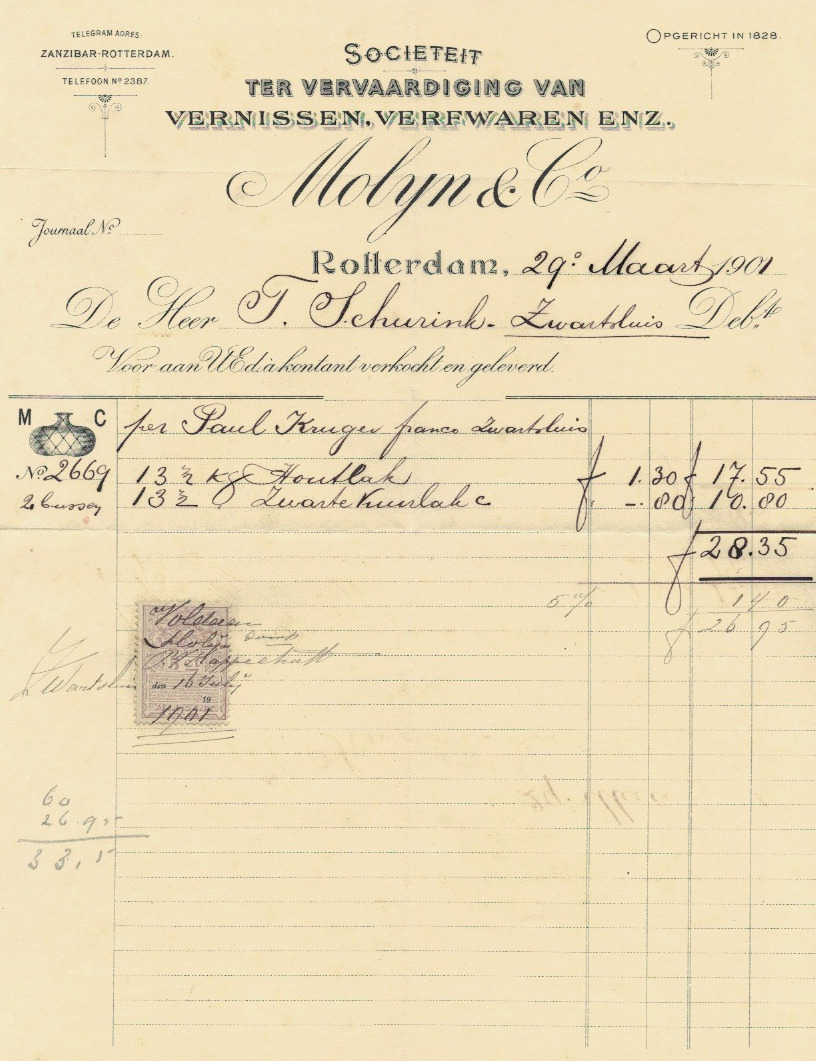 TELEGRAM ADRES:
ZANZIBAR-ROTTERDAM.
TELEFOON Nº 2387.
OPGERICHT IN 1828.
SOCIETEIT
TER VERVAARDIGING VAN
VERNISSEN, VERFWAREN ENZ.
Molyn & Cº
Journaal Nº
Rotterdam, 29º Maart 1901
De Heer T. Schurink - Zwartsluis Debt
Voor aan UEd à kontant verkocht en geleverd.
M C
per Paul Kruger franco Zwartsluis
Nº 2669 13 ½ kg Houtlak f 1.30 f 17.55
2 bussen 13 ½ " Zwarte Kuurlak c " -.80 " 10.80
f 28.35
5 % 1 40
f 26 95
Voldaan
Molijn
den 16 Julij
19
1901
Zwartsluis
60
26.95
33,5